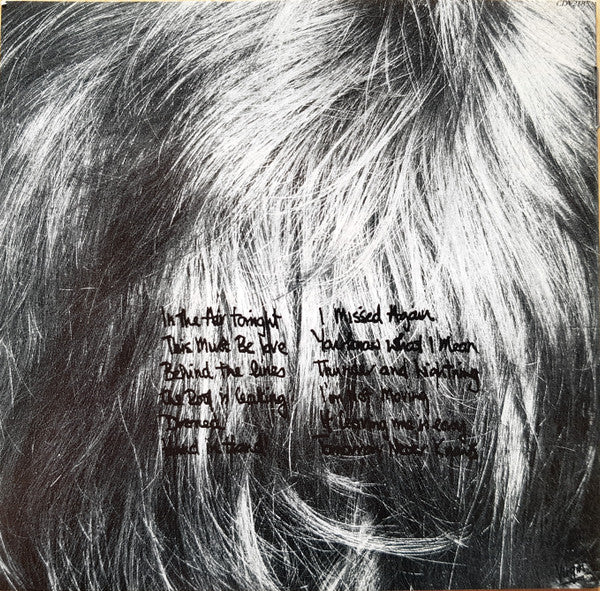 In The Air Tonight
This Must Be Love
Behind the lines
The Roof is leaking
Droned
Hand in Hand
I Missed Again
You know what I Mean
Thunder and Lightning
I'm Not Moving
If leaving me is easy
Tomorrow Never Knows